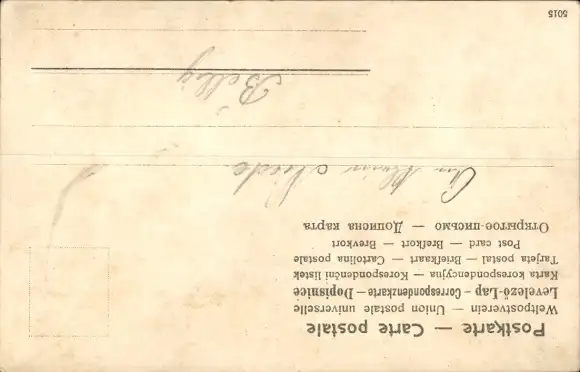 Postkarte — Carte postale
Weltpostverein — Union postale universelle
Levelező-Lap – Correspondenzkarte – Dopisnice
Karta korespondencyjna — Korespondenční lístek
Tarjeta postal — Briefkaart — Cartolina postale
Post card — Brefkort — Brevkort
Открытое письмо — Дописна карта
Billy
5015